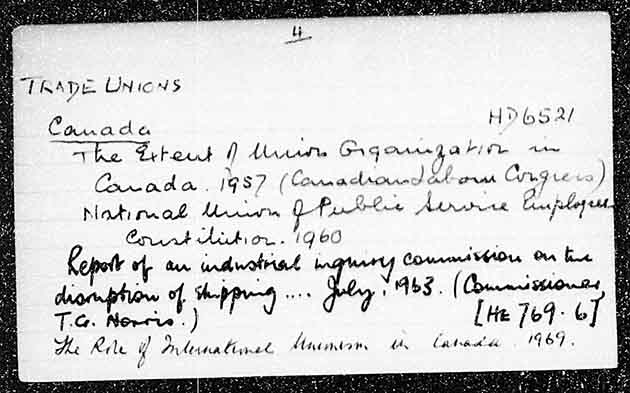 4
TRADE UNIONS
HD6521
Canada
The Extent of Union Organization in
Canada. 1957 (Canadian Labour Congress)
National Union of Public Service Employees
Constitution. 1960
Report of an industrial inquiry commission on the
disruption of shipping .... July, 1963. (Commissioner,
T.G. Norris.) [HE 769.6]
The Role of International Unionism in Canada. 1969.